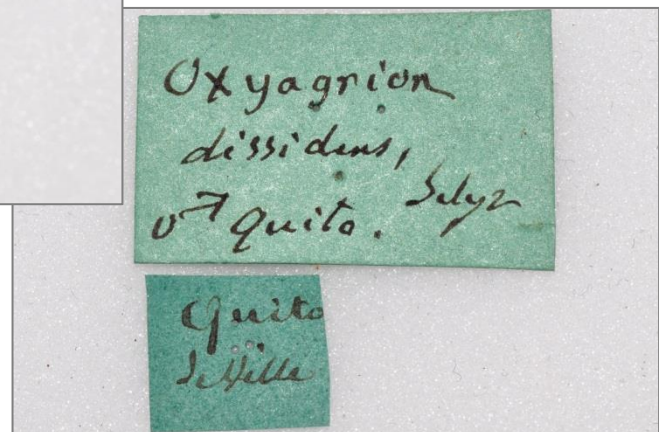 Oxyagrion
dissidens,
Selys
♂ Quito.
Quito
deVille